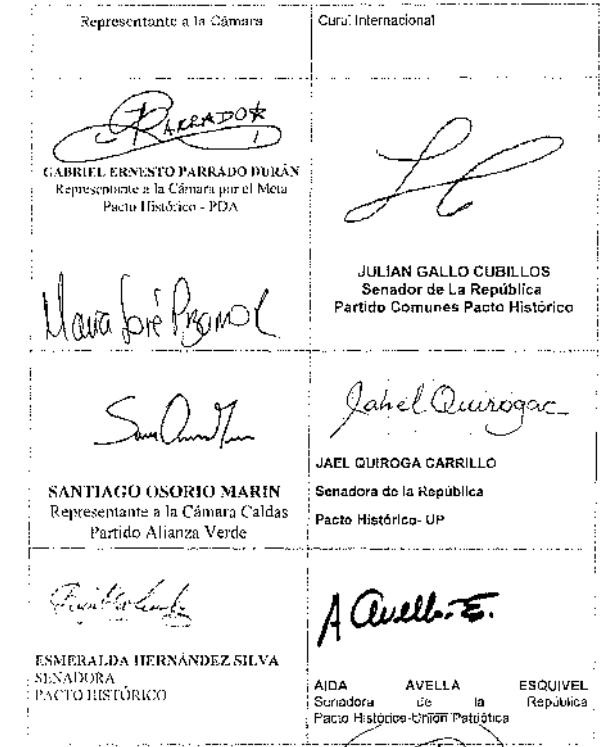 Representante a la Cámara
Curul Internacional
PARRADO
GABRIEL ERNESTO PARRADO DURÁN
Representante a la Cámara por el Meta
Pacto Histórico - PDA
JULIAN GALLO CUBILLOS
Senador de La República
Partido Comunes Pacto Histórico
María José Pizarro
SANTIAGO OSORIO MARIN
Representante a la Cámara Caldas
Partido Alianza Verde
Jahel Quirogac
JAEL QUIROGA CARRILLO
Senadora de la República
Pacto Histórico- UP
ESMERALDA HERNÁNDEZ SILVA
SENADORA
PACTO HISTÓRICO
A Avella E.
AIDA AVELLA ESQUIVEL
Senadora de la República
Pacto Histórico-Unión Patriótica